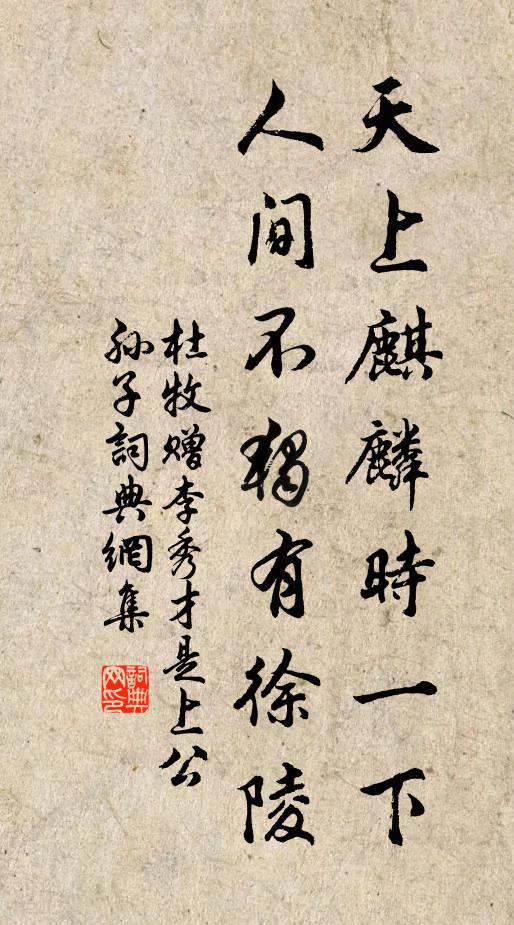 天上麒麟時一下
人间不独有徐陵
杜牧赠李秀才是上公
孙子詞典網集
詞典网印